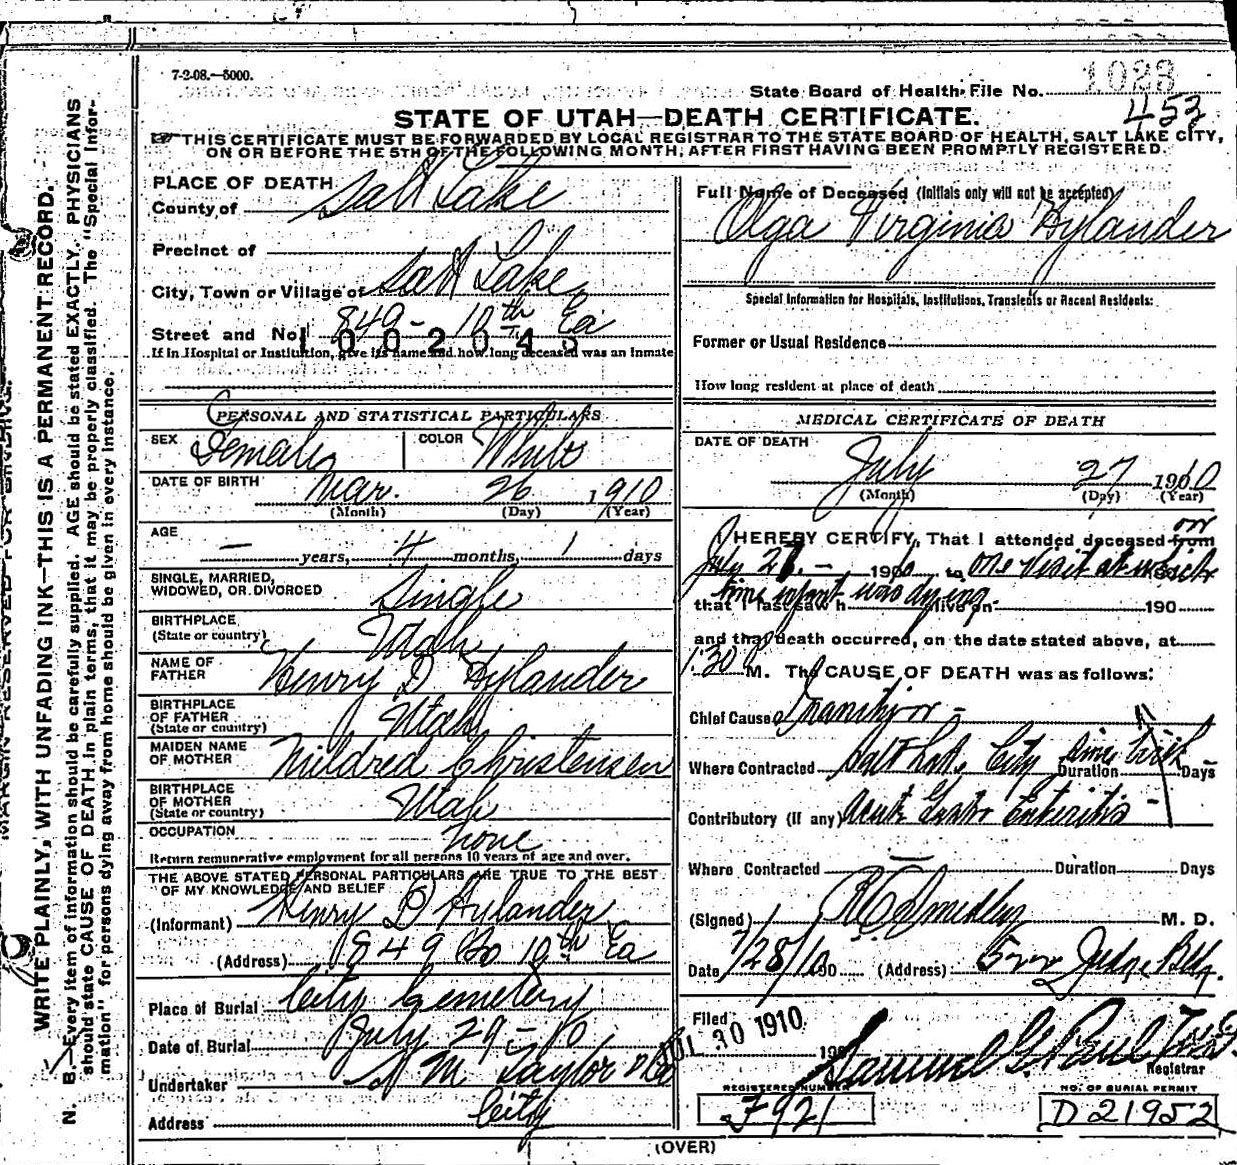 7-2-08.—5000.
State Board of Health File No. 1028
453
STATE OF UTAH—DEATH CERTIFICATE.
THIS CERTIFICATE MUST BE FORWARDED BY LOCAL REGISTRAR TO THE STATE BOARD OF HEALTH, SALT LAKE CITY,
ON OR BEFORE THE 5TH OF THE FOLLOWING MONTH, AFTER FIRST HAVING BEEN PROMPTLY REGISTERED.
PLACE OF DEATH
County of Salt Lake
Precinct of
City, Town or Village of Salt Lake
Street and No. 849 - 10th Ea
1002045
If in Hospital or Institution, give its name and how long deceased was an inmate
PERSONAL AND STATISTICAL PARTICULARS
SEX Female COLOR White
DATE OF BIRTH Mar. 26, 1910
(Month) (Day) (Year)
AGE — years, 4 months, 1 days
SINGLE, MARRIED,
WIDOWED, OR DIVORCED Single
BIRTHPLACE
(State or country) Utah
NAME OF
FATHER Henry D Hylander
BIRTHPLACE
OF FATHER
(State or country) Utah
MAIDEN NAME
OF MOTHER Mildred Christensen
BIRTHPLACE
OF MOTHER
(State or country) Utah
OCCUPATION none
Return remunerative employment for all persons 10 years of age and over.
THE ABOVE STATED PERSONAL PARTICULARS ARE TRUE TO THE BEST
OF MY KNOWLEDGE AND BELIEF
(Informant) Henry D Hylander
(Address) 849 So 10th Ea
Place of Burial City Cemetery
Date of Burial July 29 - 10
Undertaker S M Taylor & Co
Address City
Full Name of Deceased (Initials only will not be accepted)
Olga Virginia Hylander
Special Information for Hospitals, Institutions, Transients or Recent Residents:
Former or Usual Residence
How long resident at place of death
MEDICAL CERTIFICATE OF DEATH
DATE OF DEATH
July 27 1910
(Month) (Day) (Year)
I HEREBY CERTIFY, That I attended deceased from on
July 27. - 1910 to one visit at which
time infant was dying.
that I last saw h alive on 190
and that death occurred, on the date stated above, at
1.30 M. The CAUSE OF DEATH was as follows:
Chief Cause Inanition -
Where Contracted Salt Lake City Duration since birth Days
Contributory (if any) Acute Gastro Enteritis -
Where Contracted — Duration Days
(Signed) M. D.
Date 7/28/10 190 (Address) 522 Judge Bldg.
Filed JUL 30 1910 190
Samuel G. Paul
Registrar
REGISTERED NUMBER
F921
NO. OF BURIAL PERMIT
D 21952
(OVER)
MARGIN RESERVED FOR BINDING.
WRITE PLAINLY, WITH UNFADING INK—THIS IS A PERMANENT RECORD.
N. B.—Every item of information should be carefully supplied. AGE should be stated EXACTLY. PHYSICIANS
should state CAUSE OF DEATH in plain terms, that it may be properly classified. The "Special Infor-
mation" for persons dying away from home should be given in every instance.